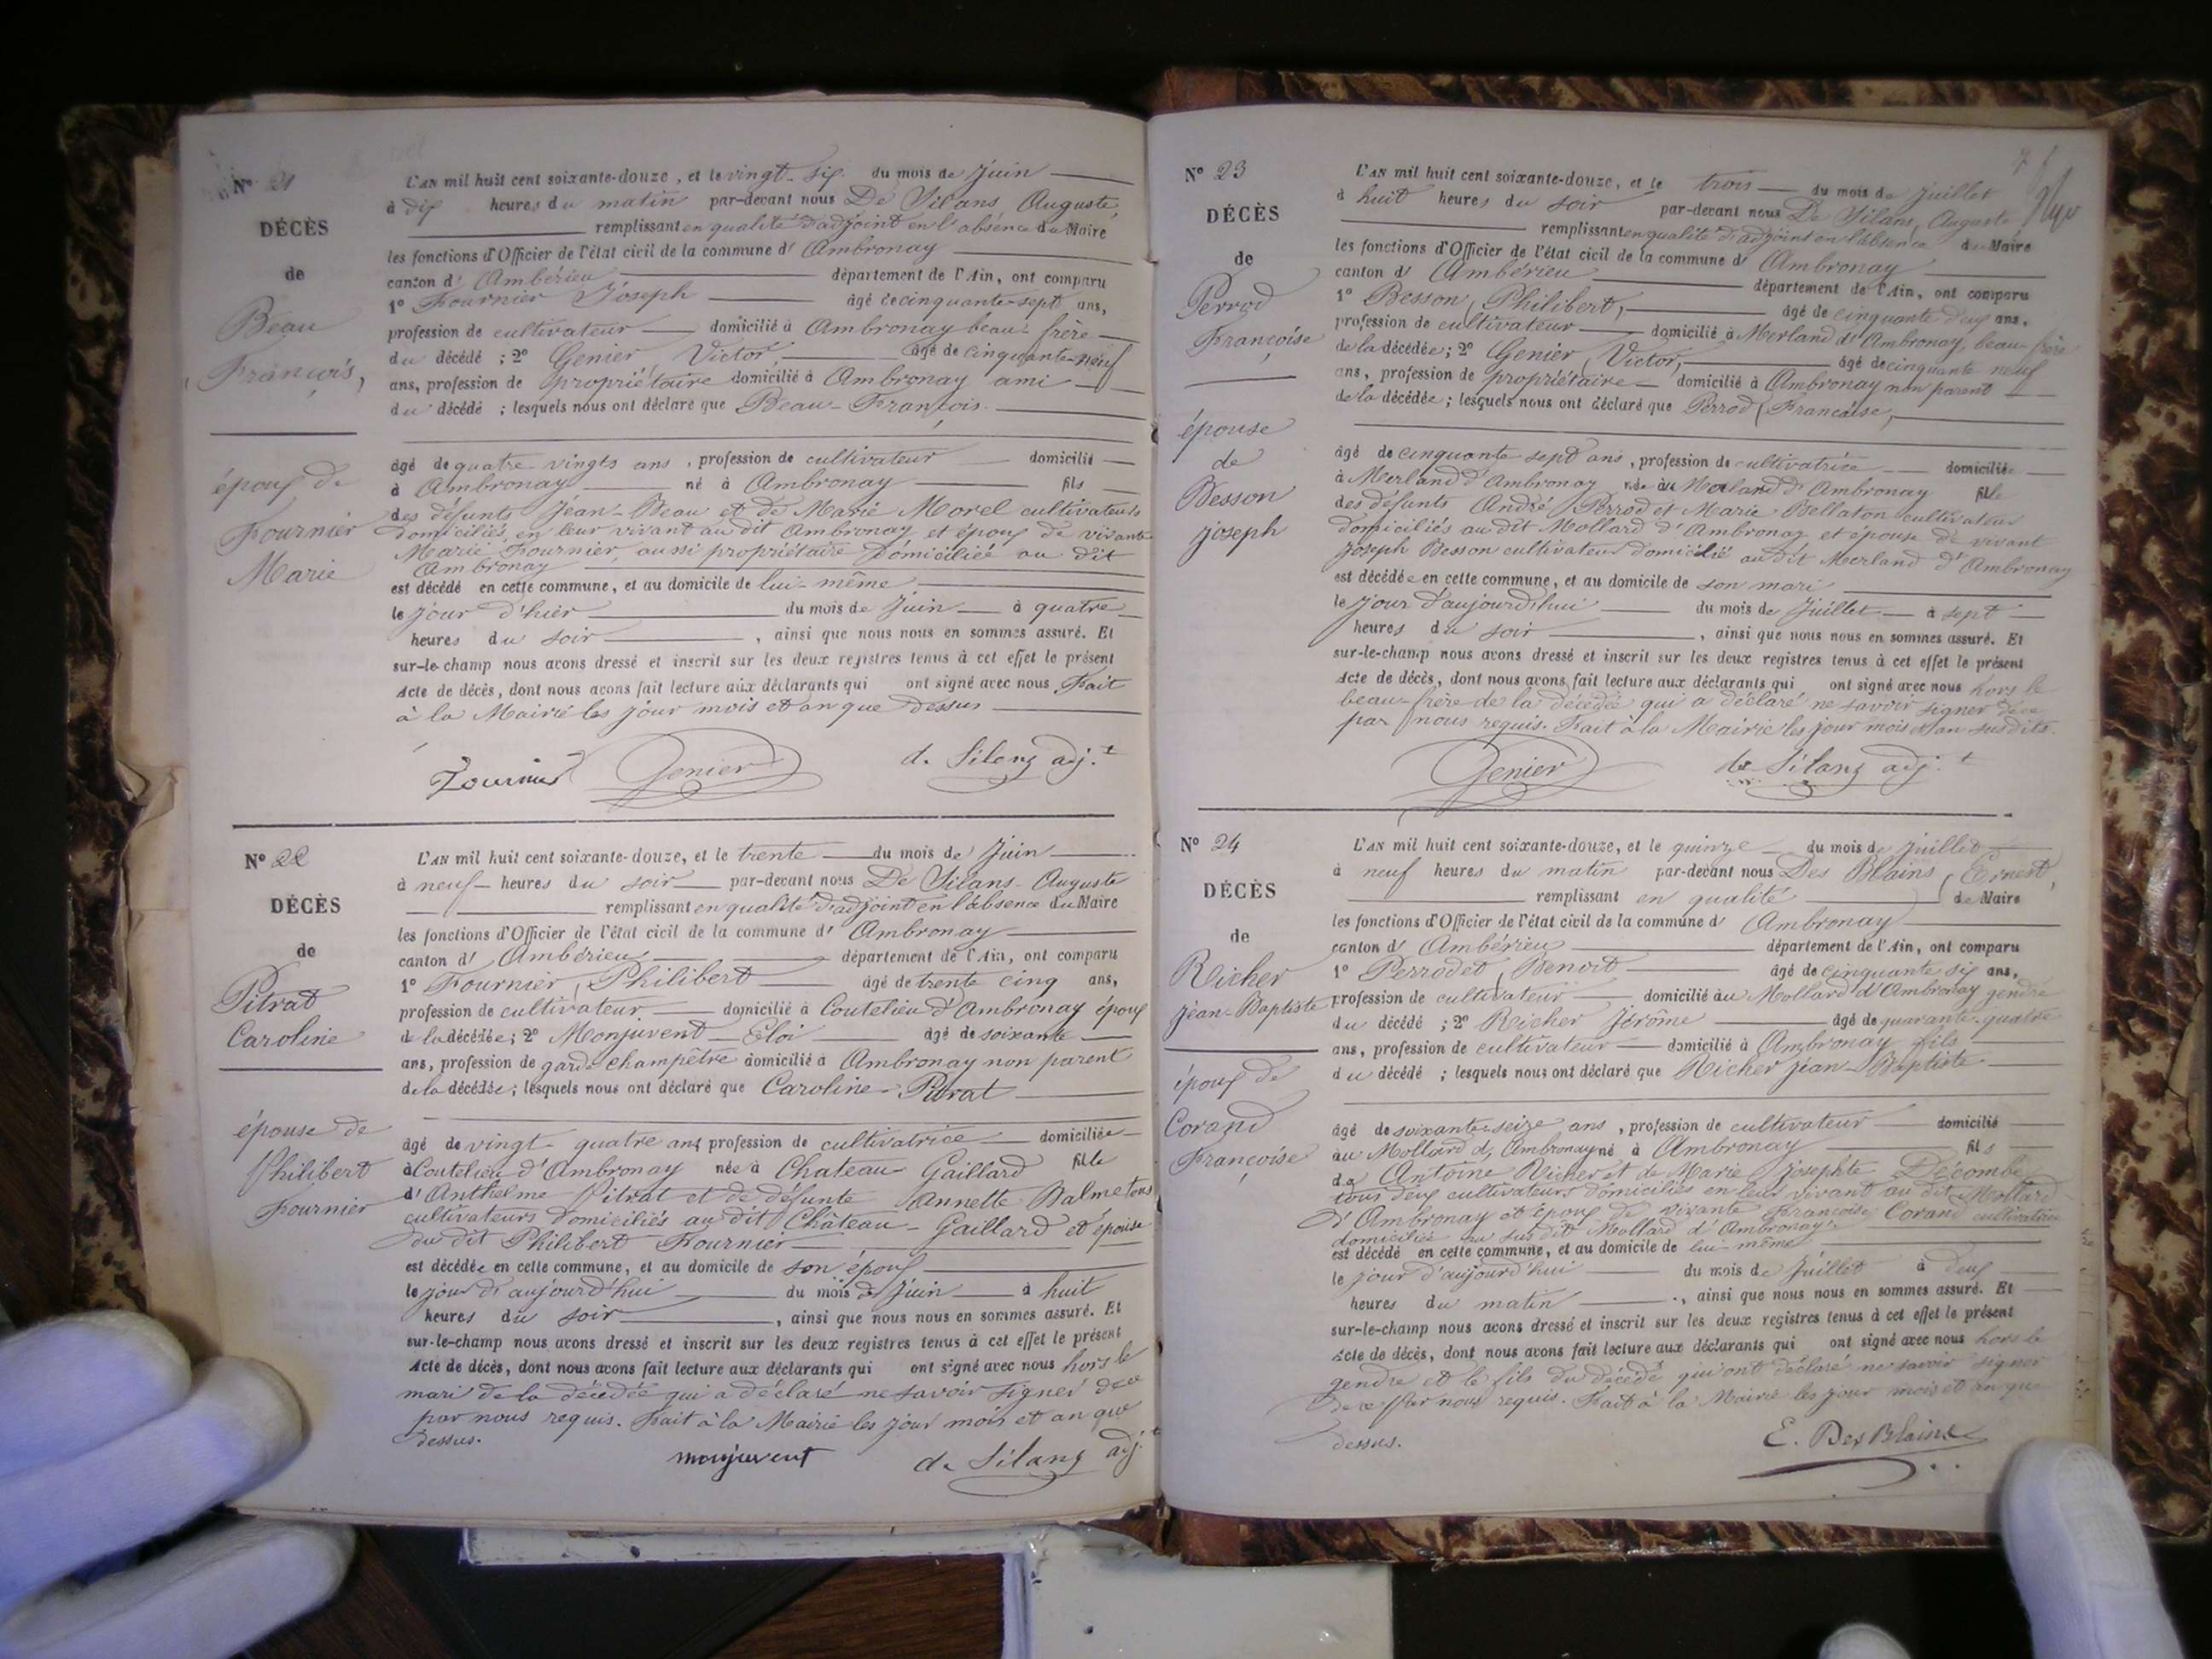 N° 21
DÉCÈS
de
Beau
François,
époux de
Fournier
Marie
L'AN mil huit cent soixante-douze, et le vingt-six du mois de Juin
à dix heures du matin par-devant nous De Silans Auguste,
remplissant en qualité d'adjoint en l'absence du Maire
les fonctions d'Officier de l'état civil de la commune d' Ambronay
canton d' Ambérieu département de l'Ain, ont comparu
1° Fournier Joseph âgé de cinquante-sept ans,
profession de cultivateur domicilié à Ambronay beau-frère
du décédé ; 2° Genier, Victor, âgé de cinquante-neuf
ans, profession de propriétaire domicilié à Ambronay ami
du décédé ; lesquels nous ont déclaré que Beau-François.
âgé de quatre vingts ans, profession de cultivateur domicilié
à Ambronay né à Ambronay fils
des défunts Jean-Beau et de Marie Morel cultivateurs
domiciliés en leur vivant au dit Ambronay et époux de vivante
Marie Fournier, aussi propriétaire domiciliée au dit
Ambronay
est décédé en cette commune, et au domicile de lui-même
le jour d'hier du mois de Juin à quatre
heures du soir, ainsi que nous nous en sommes assuré. Et
sur-le-champ nous avons dressé et inscrit sur les deux registres tenus à cet effet le présent
Acte de décès, dont nous avons fait lecture aux déclarants qui ont signé avec nous Fait
à la Mairie les jour mois et an que dessus
Fournier Genier d. Silans adj.t
N° 22
DÉCÈS
de
Pitrat
Caroline
épouse de
Philibert
Fournier
L'AN mil huit cent soixante-douze, et le trente du mois de Juin
à neuf heures du soir par-devant nous De Silans Auguste
remplissant en qualité d'adjoint en l'absence du Maire
les fonctions d'Officier de l'état civil de la commune d' Ambronay
canton d' Ambérieu département de l'Ain, ont comparu
1° Fournier, Philibert âgé de trente cinq ans,
profession de cultivateur domicilié à Coutelieu d'Ambronay époux
de la décédée ; 2° Monjuvent Eloi âgé de soixante
ans, profession de garde champêtre domicilié à Ambronay non parent
de la décédée ; lesquels nous ont déclaré que Caroline-Pitrat
âgé de vingt-quatre ans profession de cultivatrice domiciliée
à Coutelieu d'Ambronay née à Chateau-Gaillard fille
d'Anthelme Pitrat et de défunte Jannette Balme tous
cultivateurs domiciliés au dit Château-Gaillard et épouse
du dit Philibert Fournier
est décédée en cette commune, et au domicile de son époux
le jour d'aujourd'hui du mois de Juin à huit
heures du soir, ainsi que nous nous en sommes assuré. Et
sur-le-champ nous avons dressé et inscrit sur les deux registres tenus à cet effet le présent
Acte de décès, dont nous avons fait lecture aux déclarants qui ont signé avec nous hors le
mari de la décédée qui a déclaré ne savoir signer de ce
par nous requis. Fait à la Mairie les jour mois et an que
dessus.
monjuvent de Silans adj.t
N° 23
DÉCÈS
de
Perrod
Françoise
épouse
de
Besson
Joseph
L'AN mil huit cent soixante-douze, et le trois du mois de Juillet
à huit heures du soir par-devant nous De Silans, Auguste
remplissant en qualité d'adjoint en l'absence du Maire
les fonctions d'Officier de l'état civil de la commune d' Ambronay
canton d' Ambérieu département de l'Ain, ont comparu
1° Besson, Philibert, âgé de cinquante deux ans,
profession de cultivateur domicilié à Merland d'Ambronay, beau-frère
de la décédée ; 2° Genier, Victor, âgé de cinquante neuf
ans, profession de propriétaire domicilié à Ambronay non parent
de la décédée ; lesquels nous ont déclaré que Perrod, Françoise,
âgé de cinquante sept ans, profession de cultivatrice domiciliée
à Merland d'Ambronay née au Merland d'Ambronay fille
des défunts André Perrod et Marie Bellaton cultivateurs
domiciliés au dit Mollard d'Ambronay et épouse de vivant
Joseph Besson cultivateur domicilié au dit Merland d'Ambronay
est décédée en cette commune, et au domicile de son mari
le jour d'aujourd'hui du mois de Juillet à sept
heures du soir, ainsi que nous nous en sommes assuré. Et
sur-le-champ nous avons dressé et inscrit sur les deux registres tenus à cet effet le présent
Acte de décès, dont nous avons fait lecture aux déclarants qui ont signé avec nous hors le
beau-frère de la décédée qui a déclaré ne savoir signer de ce
par nous requis. Fait à la Mairie les jour mois et an susdits.
Genier de Silans adj.t
N° 24
DÉCÈS
de
Richer
Jean-Baptiste
époux de
Corand
Françoise
L'AN mil huit cent soixante-douze, et le quinze du mois de Juillet
à neuf heures du matin par-devant nous Des Blains, Ernest,
remplissant en qualité de Maire
les fonctions d'Officier de l'état civil de la commune d' Ambronay
canton d' Ambérieu département de l'Ain, ont comparu
1° Perrodet, Benoit âgé de cinquante six ans,
profession de cultivateur domicilié au Mollard d'Ambronay gendre
du décédé ; 2° Richer Jérôme âgé de quarante-quatre
ans, profession de cultivateur domicilié à Ambronay fils
du décédé ; lesquels nous ont déclaré que Richer Jean-Baptiste
âgé de soixante-seize ans, profession de cultivateur domicilié
au Mollard d'Ambronay né à Ambronay fils
de Antoine Richer et de Marie Josephte Décombe
tous deux cultivateurs domiciliés en leur vivant au dit Mollard
d'Ambronay et époux de vivante Françoise Corand cultivatrice
domiciliée au sus dit Mollard d'Ambronay
est décédé en cette commune, et au domicile de lui-même
le jour d'aujourd'hui du mois de Juillet à deux
heures du matin, ainsi que nous nous en sommes assuré. Et
sur-le-champ nous avons dressé et inscrit sur les deux registres tenus à cet effet le présent
Acte de décès, dont nous avons fait lecture aux déclarants qui ont signé avec nous hors le
gendre et le fils du décédé qui ont déclaré ne savoir signer
de ce par nous requis. Fait à la Mairie les jour mois et an que
dessus.
E. Des Blains